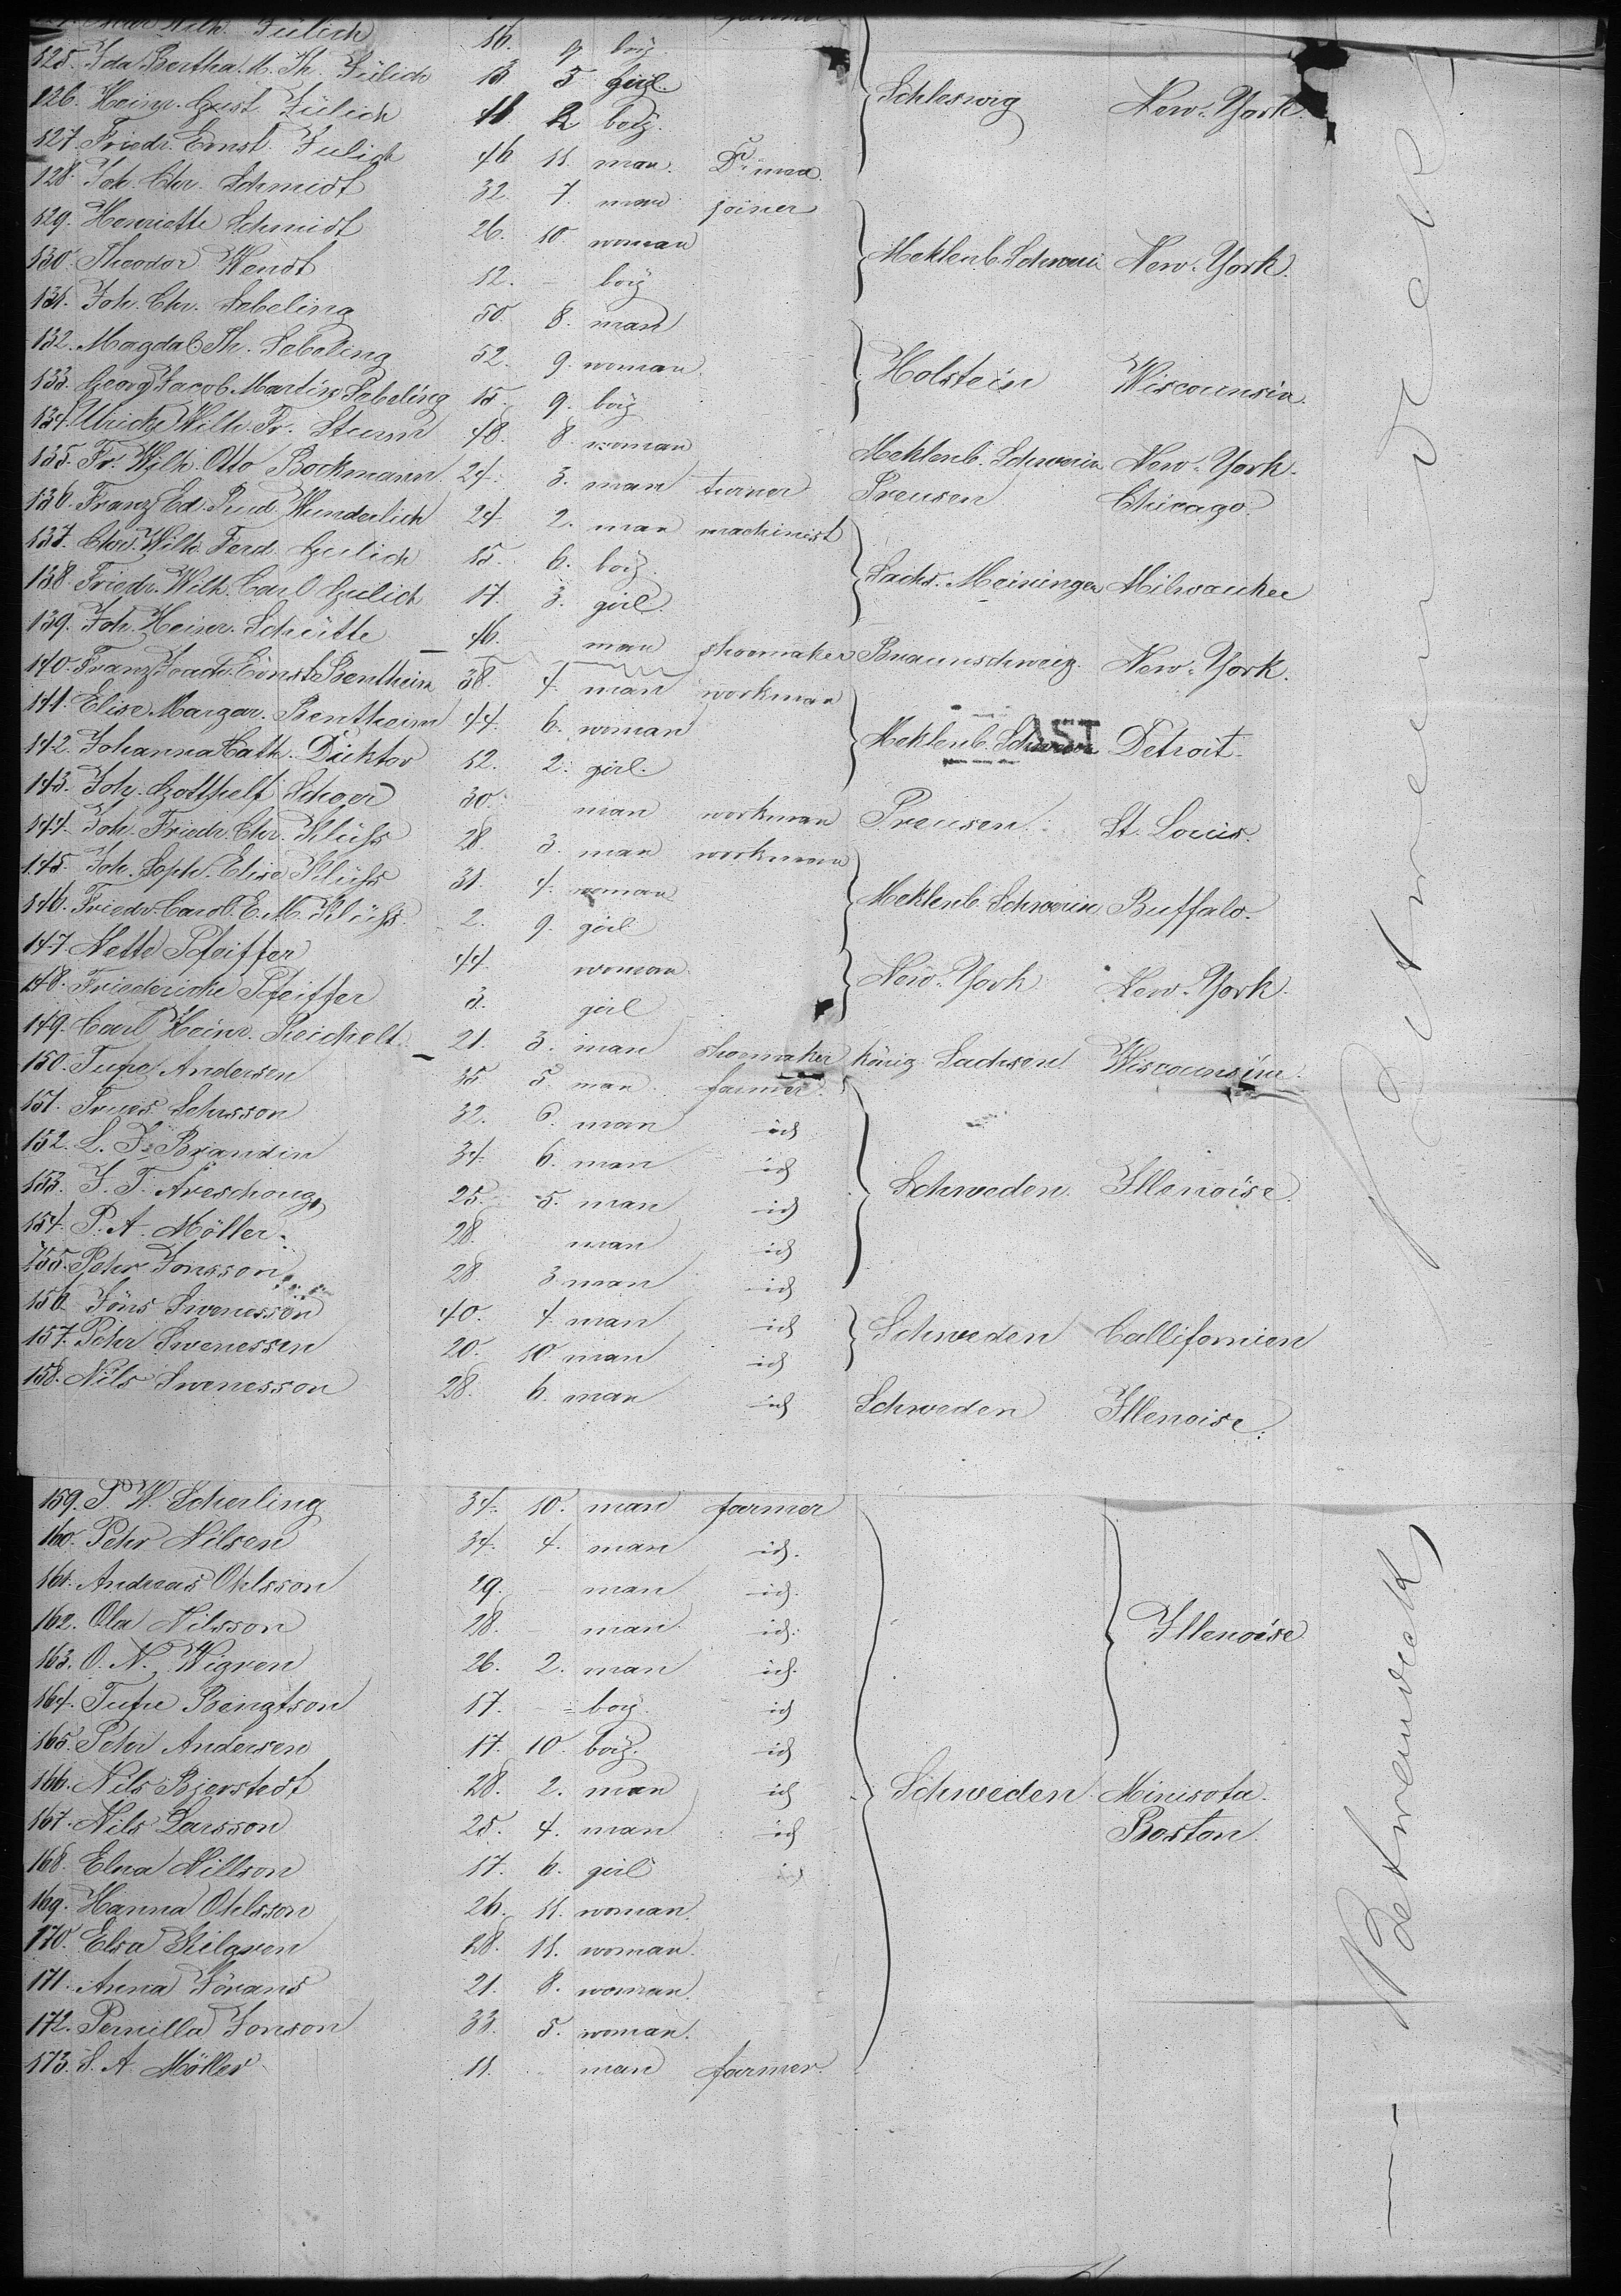 Wilh. Jülich 16. 9 boÿ
125. Ida Bertha M. Th. Jülich 13 5 girl.
126. Heinr. Gust. Jülich 11 2 boÿ. Schleswig New-York.
127. Friedr. Ernst Julich 46 11. man.
128. Joh. Chr. Schmidt 32. 7. man joiner
129. Henriette Schmidt 26. 10. woman Meklenb. Schwerin New-York.
130. Theodor Wendt 12. - boÿ
131. Joh. Chr. Sebeling 50. 8. man
132. Magdal. Th. Sebeling 52. 9. woman. Holstein Wiscounsin.
133. Georg Jacob Martin Sebeling 15. 9. boÿ
134. Ulricke Wilh. Fr. Sturm 48. 8 woman Meklenb. Schwerin New-York.
135. Fr. Wilh. Otto Bockmann. 24. 3. man turner Preusen Chicago.
136. Franz Ed. Rud. Wunderlich 24. 2. man machinist
137. Chr. Wilh. Ferd. Gulich 15. 6. boÿ. Sachs. Meiningen Milwaukee
138. Friedr. Wilh. Carl Gulich 17. 3. girl.
139. Joh. Heinr. Schütte 46. man shoemaker Braunschweig. New-York.
140. Franz Joach. Ernst Bentheim 38. 4. man workman
141. Elise Margar. Bentheim 44. 6. woman Meklenb. Schwerin Detroit.
142. Johanna Cath. Dicktor 12. 2. girl.
143. Joh. Gotthelf Schoer 30. man workman Preusen. St. Louis.
144. Joh. Friedr. Chr. Klühs 28. 3. man workman
145. Joh. Soph. Elise Klühs 31. 4. woman Meklenb. Schwerin Buffalo.
146. Friedr. Carol. E. M. Klühs. 2. 9. girl
147. Nette Pfeiffer 44. woman. New-York New-York.
148. Friedericke Pfeiffer 3. girl
149. Carl Heinr. Reicholt. 21. 3. man shoemaker König. Sachsen. Wiscounsin.
150. Tufve Andersen 35 5. man. farmer.
151. Trues Sehrsson 32. 6. man id
152. L. F. Brandin 34. 6. man id
153. J. T. Areschoug 25. 5. man id Schweden. Illenoise.
154. P. A. Möller. 28. man id
155. Pehr Jonsson 28. 3 man id
156. Jöns Swenesson 40. 4. man id Schweden Callifornien
157. Pehr Swenessen 20. 10 man id
158. Nils Swenesson 28. 6. man id Schweden Illenoise.
159. P. W. Scherling 34. 10. man farmer
160. Pehr Nilsen 34. 4. man id.
161. Andreas Ohlsson 29. - man id.
162. Ola Nilsson 28. - man. id. Illenoise
163. O. N. Wigren 26. 2. man id.
164. Tufve Bengtson 17. - boÿ. id
165. Pehr Andersen 17. 10. boÿ. id
166. Nils Bjerstedt 28. 2. man id Schweden. Minisota.
167. Nils Larsson 25. 4. man id Boston.
168. Elna Nillson 17. 6. girl id
169. Hanna Ohlsson 26. 11. woman.
170. Elsa Kilgren 28. 11. woman.
171. Anna Jörans 21. 8. woman.
172. Pernilla Jonson 33. 5. woman.
173. S. A. Möller 11. man farmer.